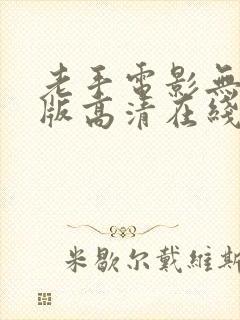 老手電影無
版高清在綫
米歇尔戴維斯